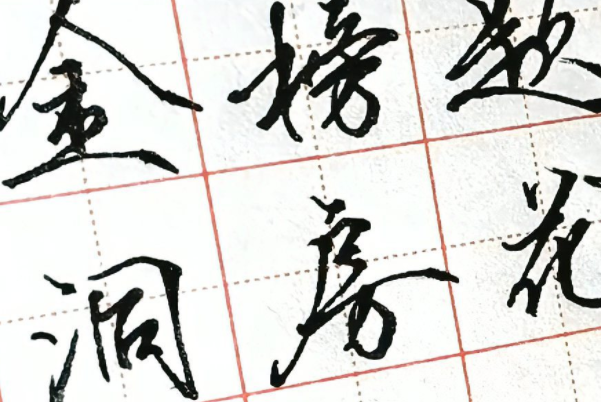 金榜题
洞房花